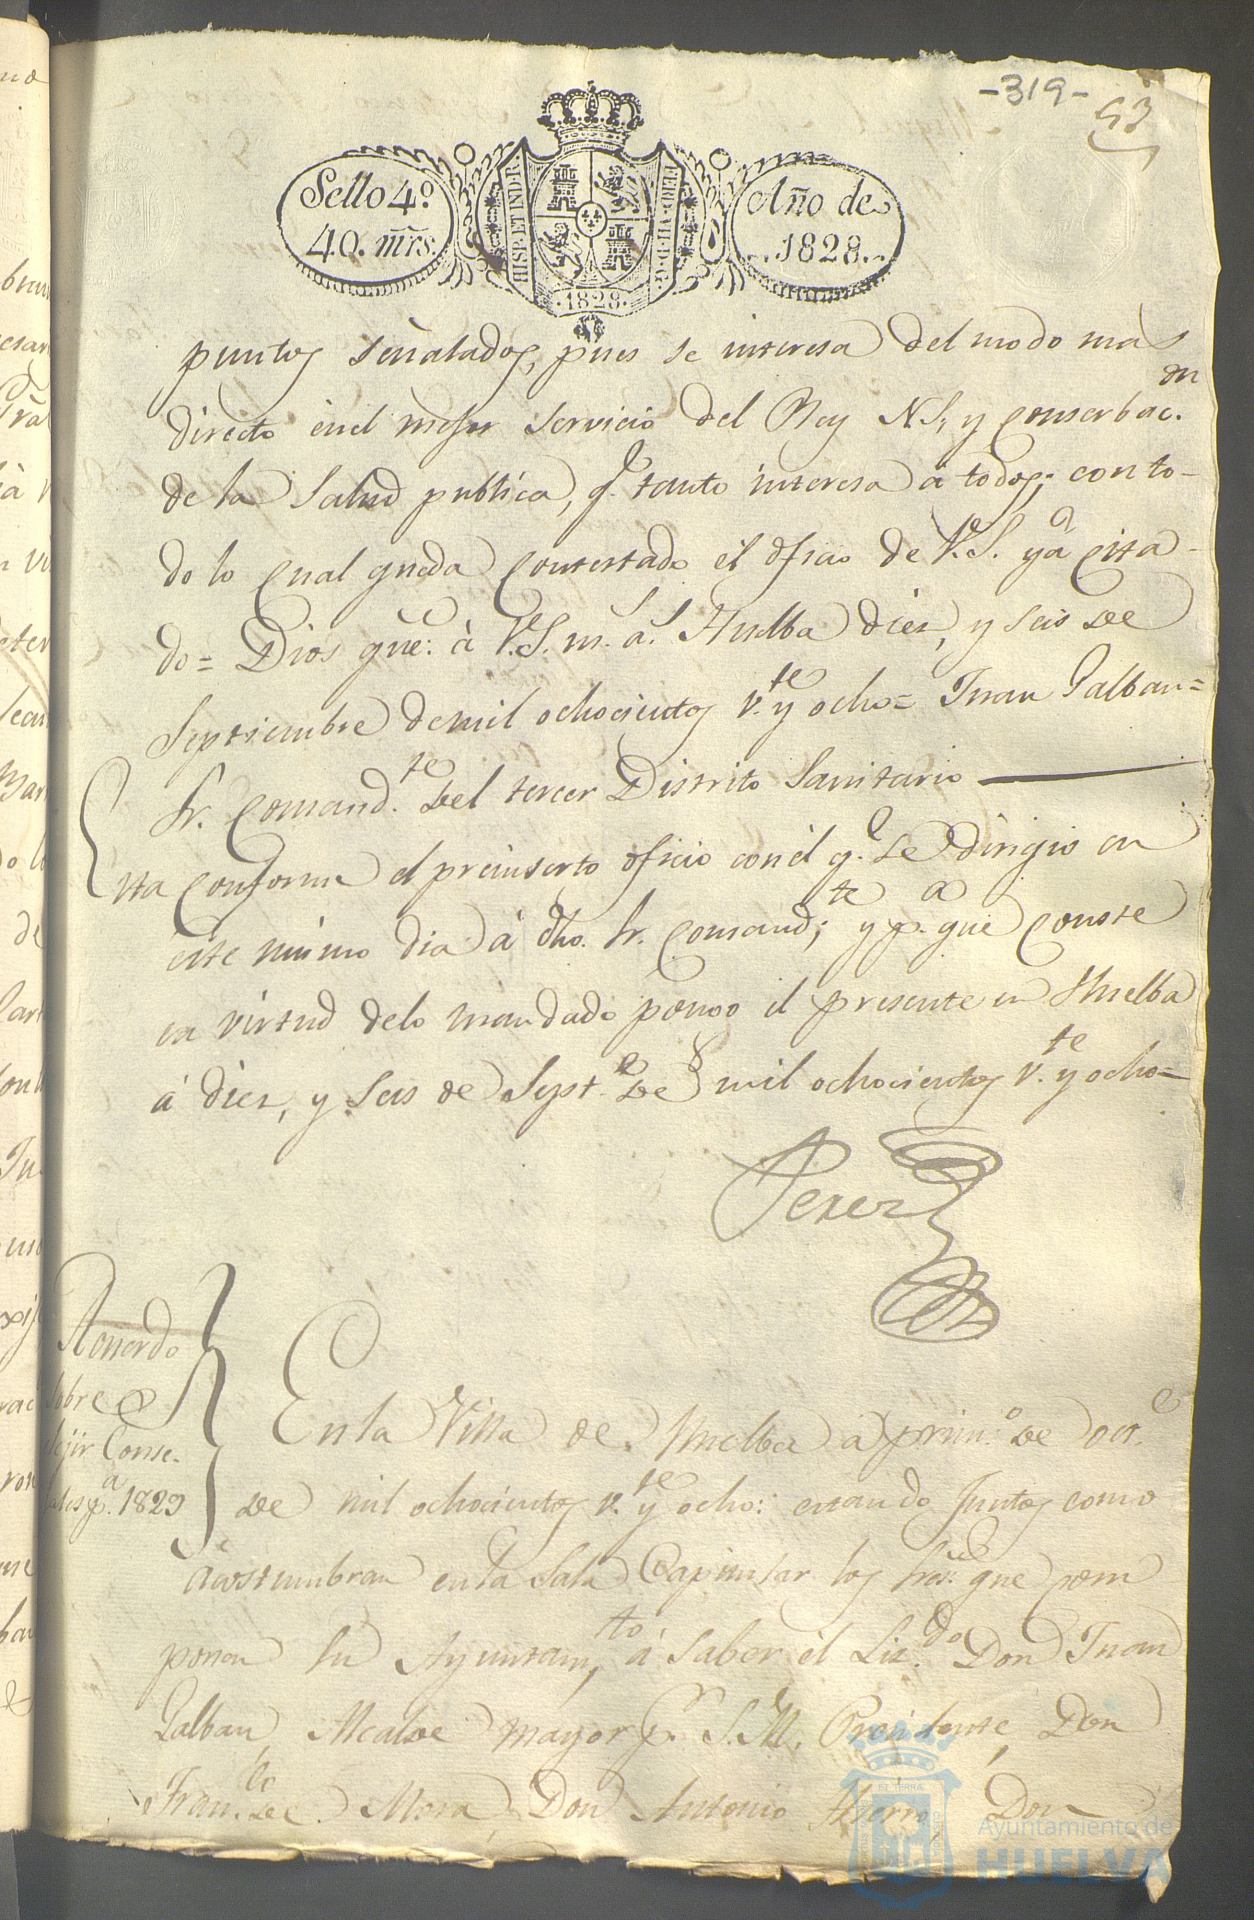 -319-
93
Sello 4º
40. mrs.
HISP. ET IND. R.
FERD. VII. D. G.
.1828.
Año de
..1828..
puntos señalados, pues se interesa del modo mas
directo en el mejor servicio del Rey N.S. y conserbac.on
de la Salud publica, q.e tanto interesa á todos; con to-
do lo cual queda contestado el oficio de V.S. ya cita-
do= Dios gue: à V.S. m.s a.s Huelba diez, y seis de
Septiembre de mil ochocientos v.te y ocho= Juan Galban=
Sr. Comand.te del tercer Distrito Sanitario
Esta conforme el preinserto oficio con el q.e se dirigio en
este mismo dia á dho. Sr. Comand.te; y p.a que conste
en virtud de lo mandado pongo el presente en Huelba
á diez, y seis de Sept.e de mil ochocientos v.te y ocho=
Perez
Acuerdo
sobre
elejir Conse-
jales p.a 1829
En la Villa de Huelba á prim.o de oct.e
de mil ochocientos v.te y ocho: estando juntos como
acostumbran en la Sala Capitular los Sres. que com
ponen su Ayuntam.to, á saber el Liz.do Don Juan
Galban, Alcalde mayor p.r S.M. Presidente, Don
Fran.co de Mora, Don Antonio Hierro, Don
Ayuntamiento de
HUELVA